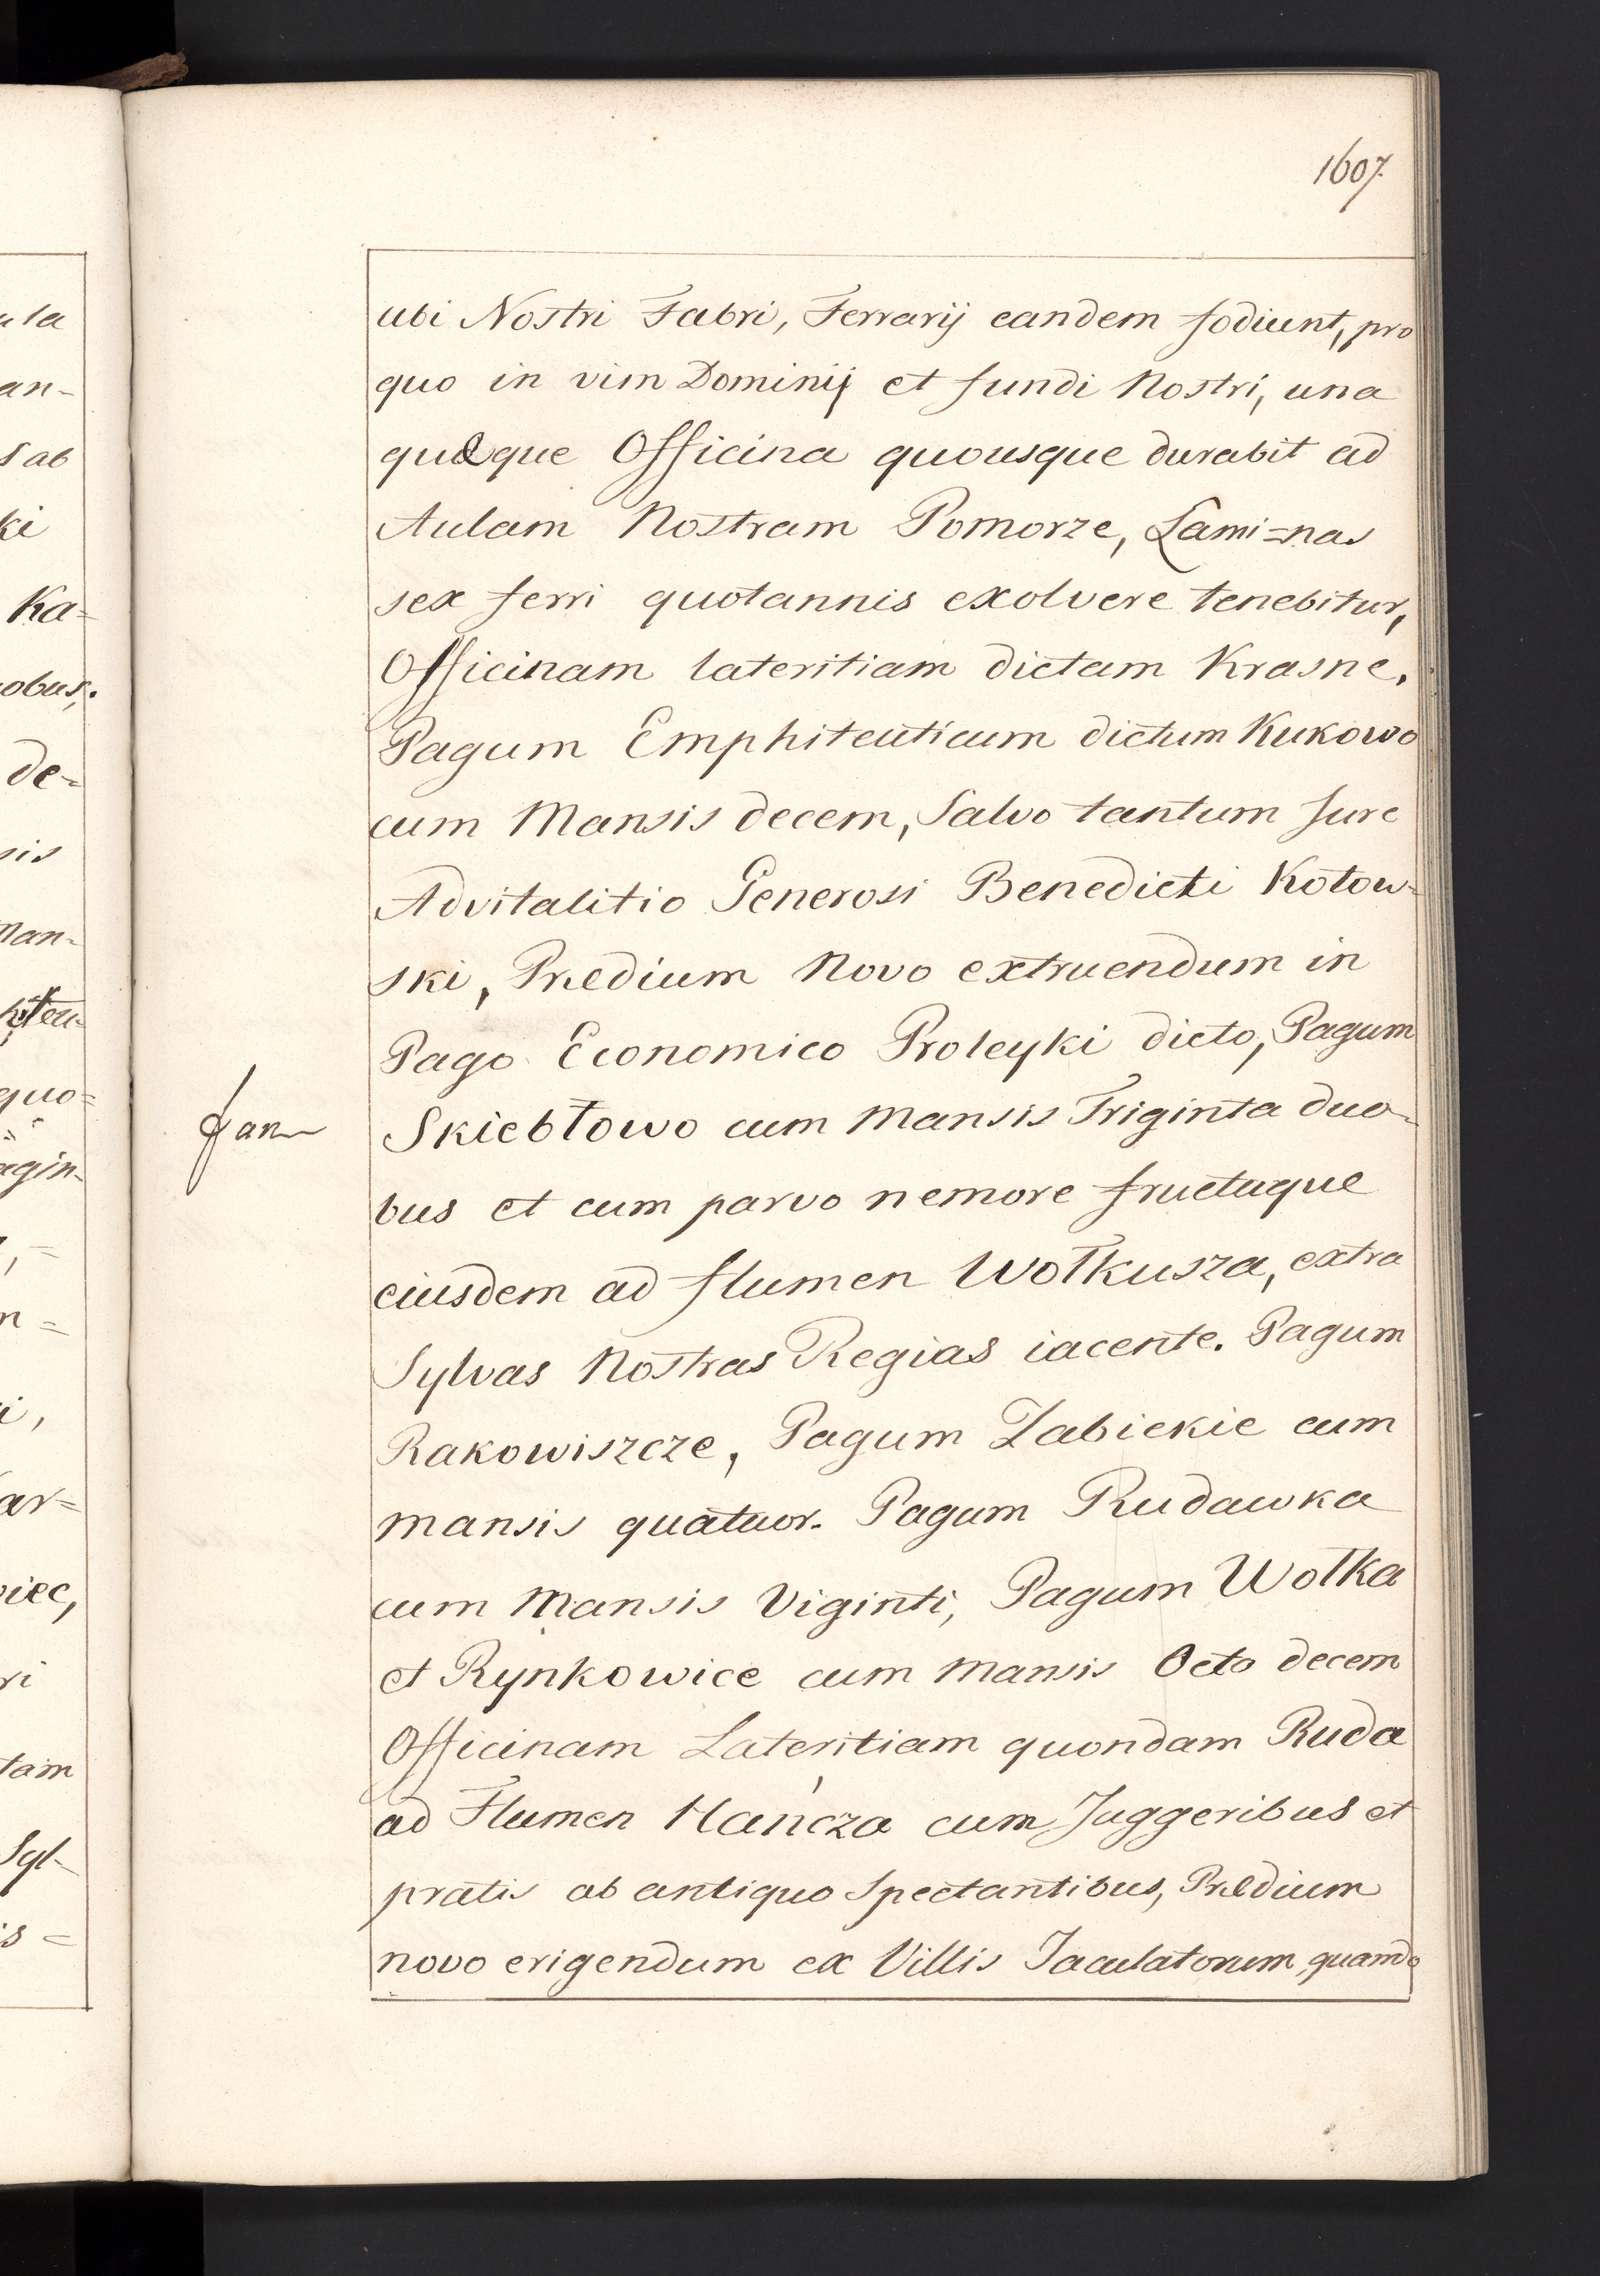 1607.
ubi Nostri Fabri, Ferrarij eandem fodiunt, pro
quo in vim Dominij et fundi Nostri, una
quæque Officina quousque durabit ad
Aulam Nostram Pomorze, Lami=nas
sex ferri quotannis exolvere tenebitur,
Officinam lateritiam dictam Krasne.
Pagum Emphiteuticum dictum Kukowo
cum Mansis decem, Salvo tantum Jure
Advitalitio Generosi Benedicti Kotow-
ski, Prædium Novo extruendum in
Pago Economico Proleyki dicto, Pagum
Skiebłowo cum Mansis Triginta duo-
bus et cum parvo nemore fructuque
eiusdem ad flumen Wołkusza, extra
Sylvas Nostras Regias iacente. Pagum
Rakowiszcze, Pagum Zabickie cum
mansis quatuor. Pagum Rudawka
cum Mansis Viginti, Pagum Wołka
et Rynkowice cum Mansis Octo decem
Officinam Lateritiam quondam Ruda
ad Flumen Hańcza cum Juggeribus et
pratis ab antiquo Spectantibus, Prædium
novo erigendum ex Villis Jaculatorum, quando